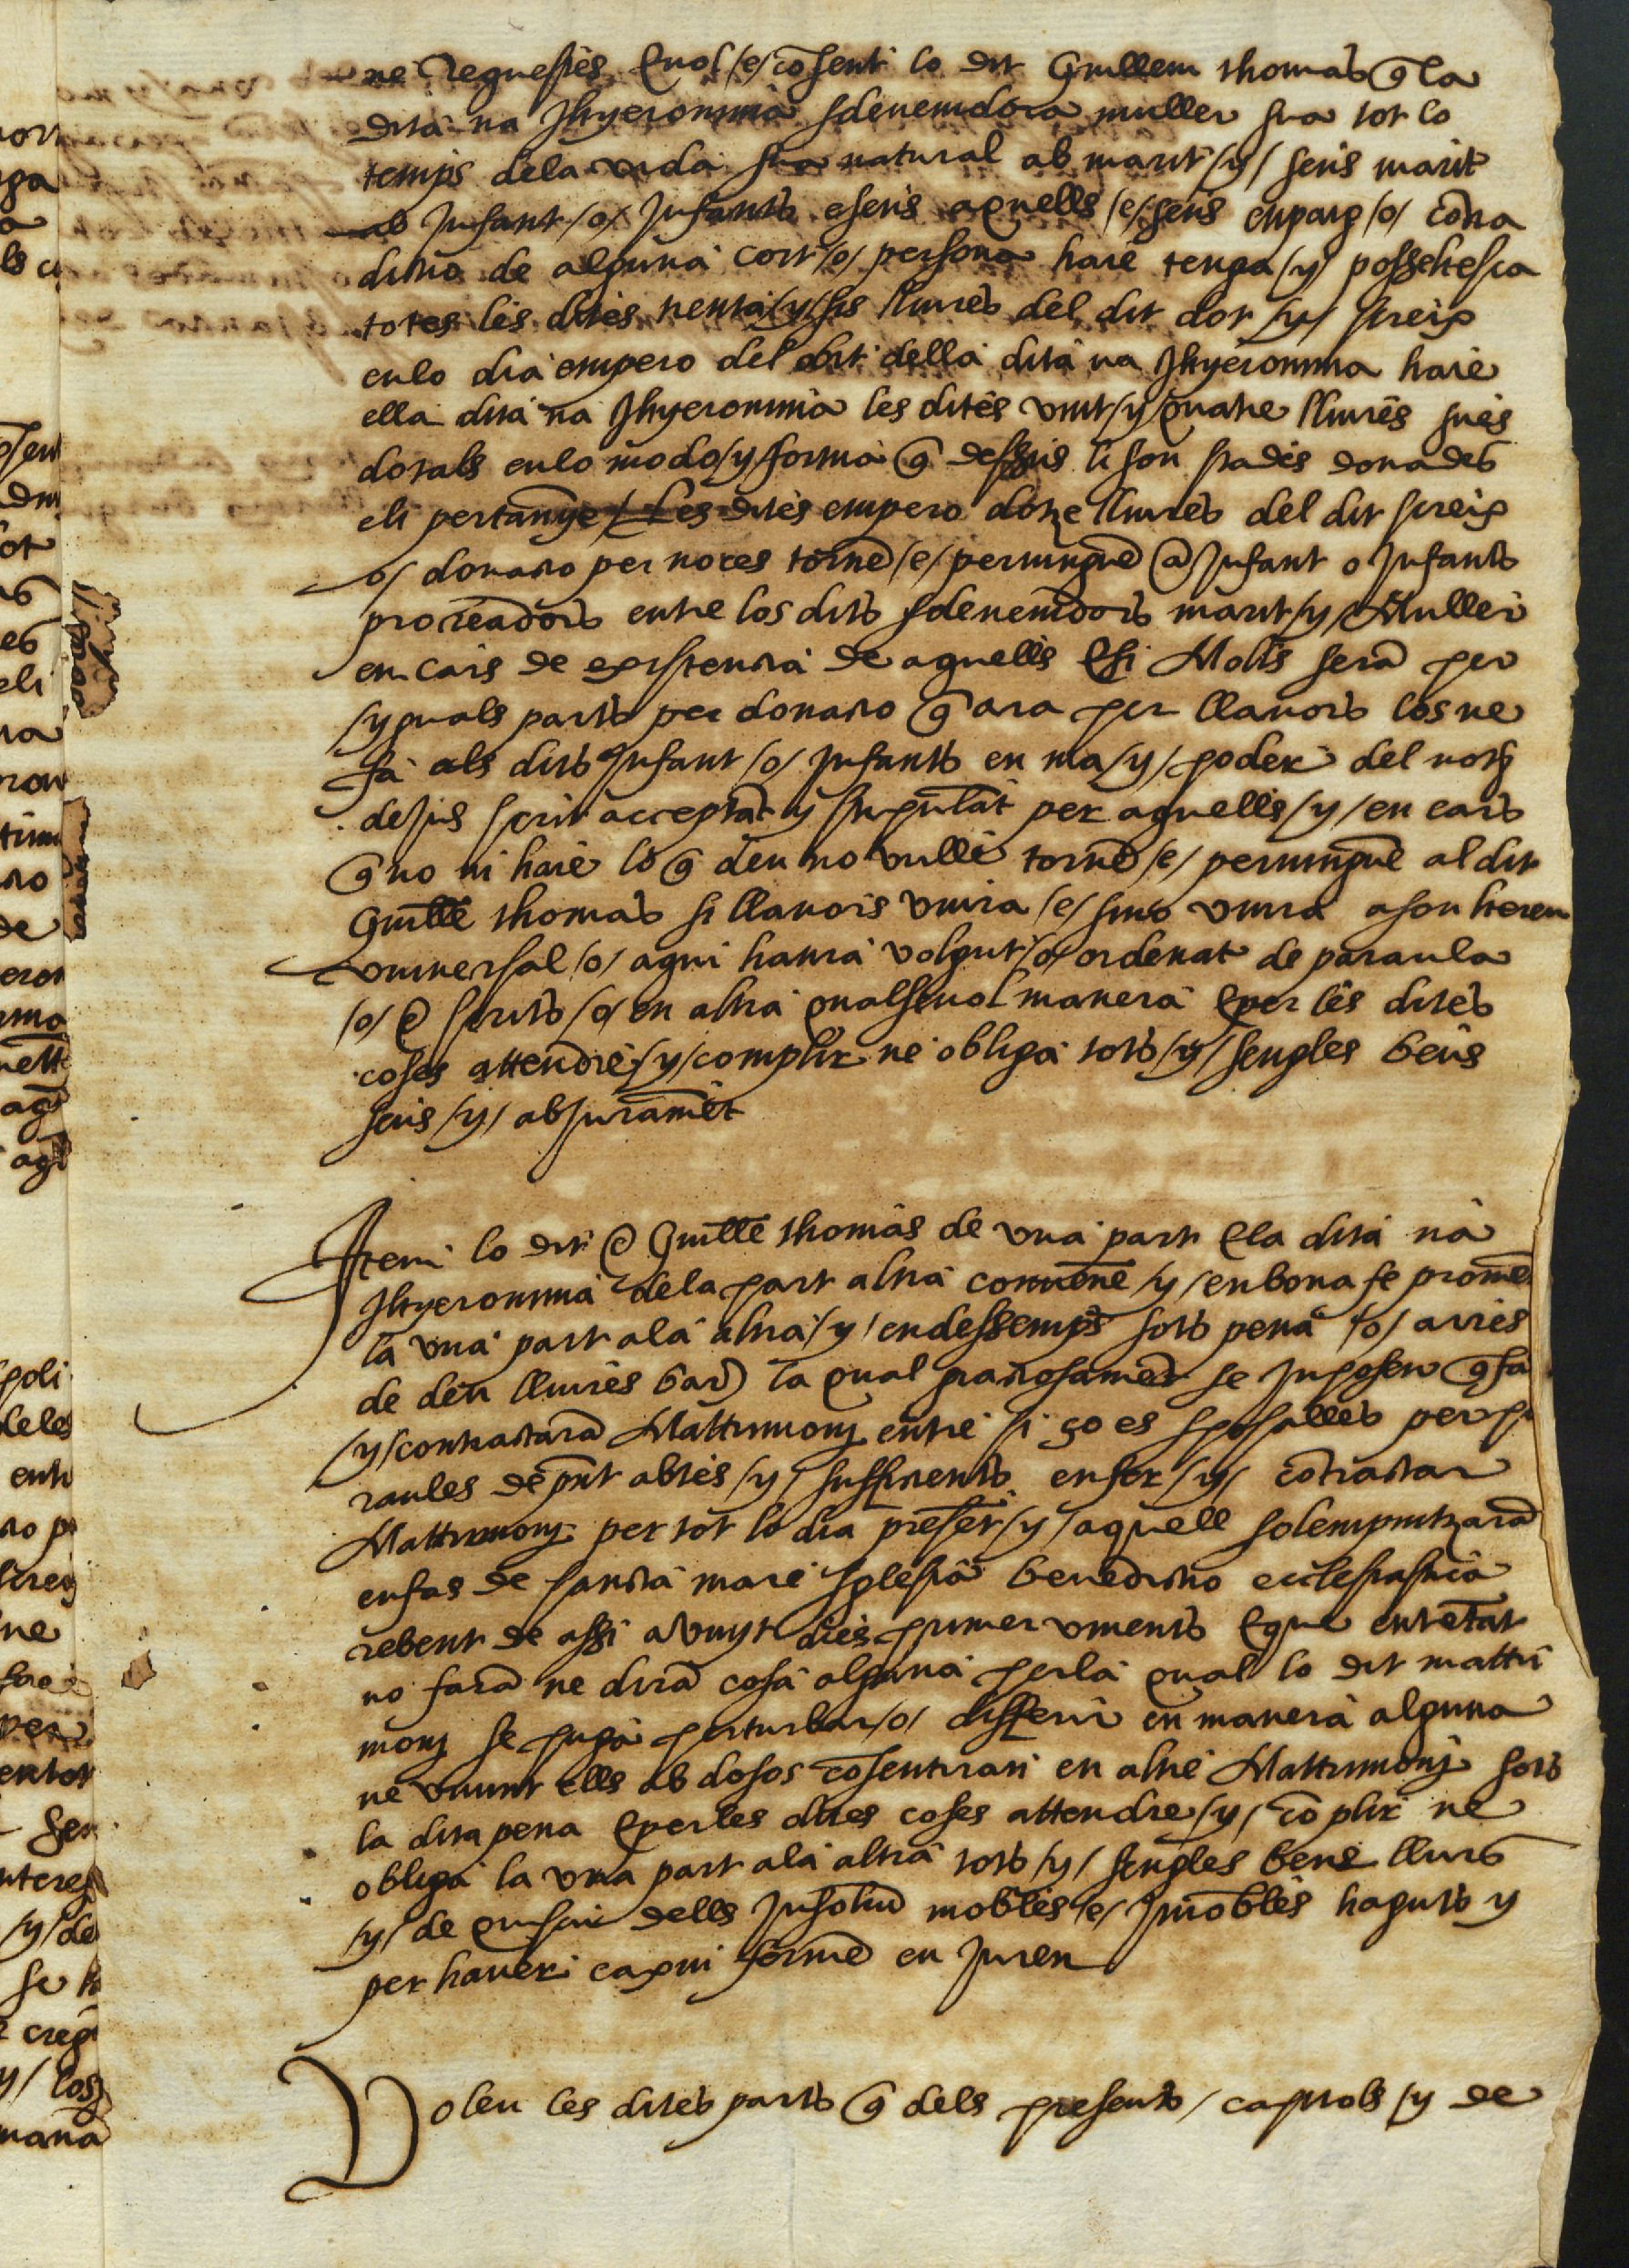 ne requestes E vol /e/ cõsent lo dit Guillem thomas q̃ la
dita na Jhyeronima sdevenidora muller sua tot lo
temps dela vida sua natural ab marit /y/ sens marit
ab Infant /o/ Infants e sens aquells /e/ sens enpaig /o/ cõtra
dictio de alguna cort /o/ persona haie tenga /y/ possehesca
totes les dites trenta /y/ sis lliures del dit dot /y/ screix
en lo dia empero del obit della dita na Jhyeronima haie
ella dita na Jhyeronima les dites vint /y/ quatre lliures sues
dotals en lo modo /y/ forma q̃ dessus li son stades donades
e li pertanye / Les dites empero dotze lliures del dit screix
/o/ donatio per noces torne /e/ pervingue a Infant o Infants
procreadors entre los dits sdevenidors marit /y/ Muller
en cars de existentia de aquells E si Molts serã per
yguals parts per donatio q̃ ara per llavors los ne
fa als dits Infant /o/ Infants en ma /y/ poder del not
dejus scrit acceptãt y stipulãt per aquells /y/ en cars
q̃ no ni haie lo q̃ deu no vulle torne /e/ pervingue al dit
Guillē thomas si llavors viura /e/ sino viura a son hereu
universal /o/ aqui haura volgut /o/ ordenat de paraula
/o/ ẽ scrits /o/ en altra qualsevol manera E per les dites
coses attendre /y/ complir ne obliga tots /y/ sengles bens
seus /y/ ab juramẽt
Item lo dit ẽ Guillē thomas de una part E la dita na
Jhyeronima dela part altra convene /y/ en bona fe promē
la una part ala altra /y/ endessemps sots pena /o/ arres
de deu lliures bar̃ la qual gratiosamẽt se Inposen q̃ fa
/y/ contractarã Mattrimonj entre si ço es sposalles per pa
raules de p̃nt abtes /y/ sufficients en fer /y/ cõtractar
Mattrimonj per tot lo dia presẽt /y/ aquell solempnitzarã
en fas de sancta mare sglesia benedictio ecclesiastica
rebent de assi a vuyt dies primer vinents E que entretãt
no farã ne dirã cosa alguna per la qual lo dit mattri
monj se puga perturbar /o/ differir en manera alguna
ne vivint ells ab dosos cõsentiran en altre Mattrimonj sots
la dita pena E per les dites coses attendre /y/ cõplir ne
obliga la una part ala altra tots /y/ sengles bens llurs
/y/ de quiscu dells Insolidũ mobles /e/ Imobles haguts y
per haver e axi ferme en Juren
Volen les dites parts q̃ dels presents / capitols /y de